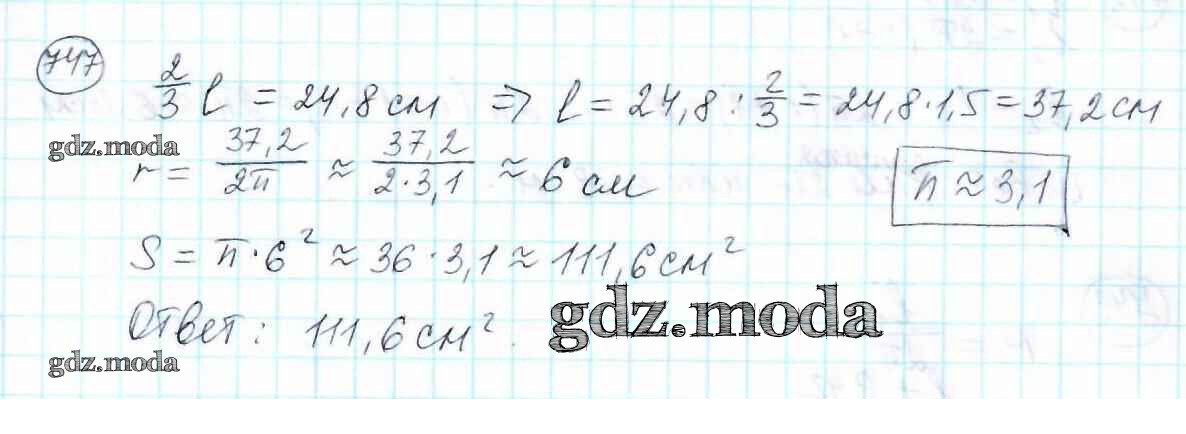 747
2/3 l = 24,8 см ⇒ l = 24,8 : 2/3 = 24,8·1,5 = 37,2 см
gdz.moda
r = 37,2/2π ≈ 37,2/2·3,1 ≈ 6 см
π ≈ 3,1
S = π·6² ≈ 36·3,1 ≈ 111,6 см²
Ответ: 111,6 см².
gdz.moda
gdz.moda